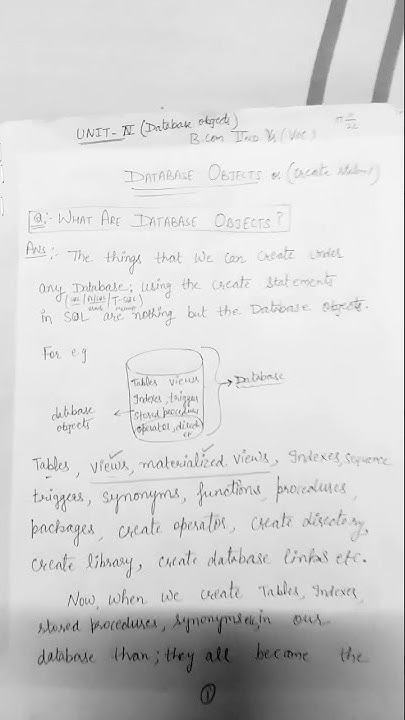 UNIT- IV (Database objects)
B.Com IInd Yr (Voc)
DATABASE OBJECTS or (Create
Q:- WHAT ARE DATABASE OBJECTS?
Ans:- The things that we can create under
any Database; using the Create Statements
in SQL are nothing but the Database objects.
For e.g
Tables views
Indexes, trigger
Stored procedures
operator, direct
etc
→ Database
database
objects
Tables, views, materialized views, Indexes, sequence
triggers, synonyms, functions, procedures,
packages, create operator, create directory,
create library, create database links etc.
Now, when we create Tables, Indexes,
stored procedures, synonyms etc, in our
database than; they all become the
1